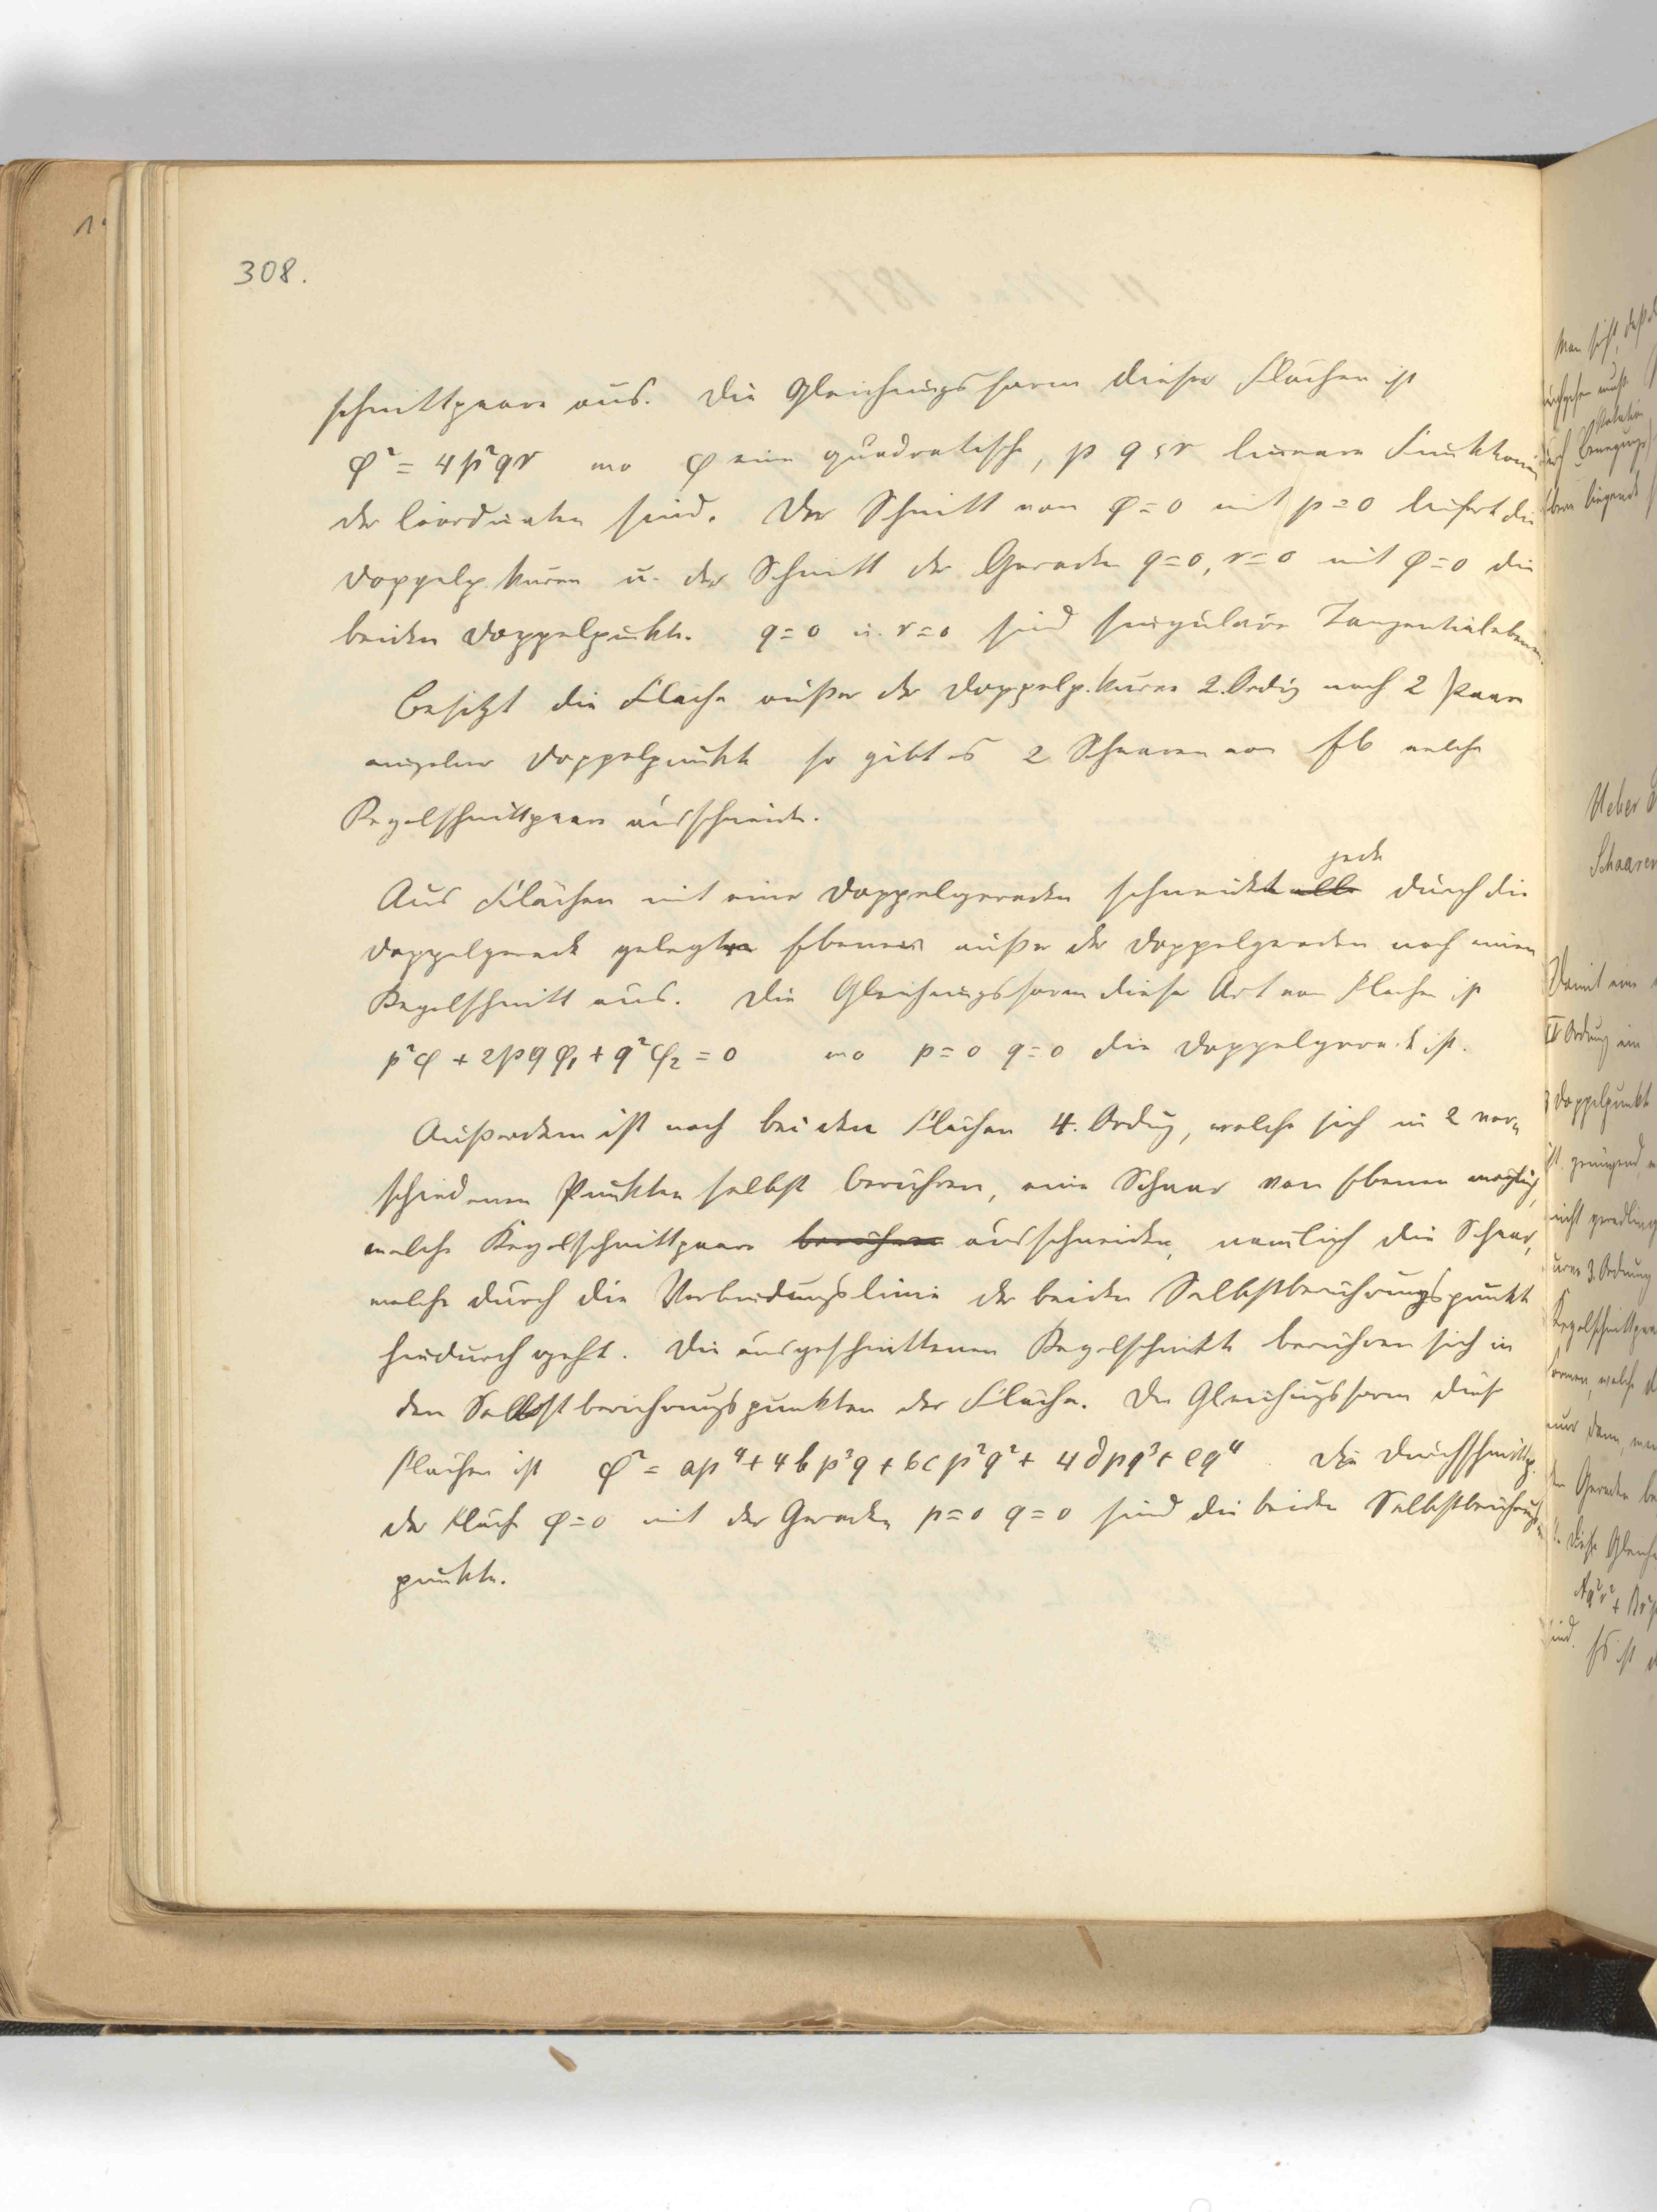 308.
schnittpaare aus. Die Gleichungsform dieser Flächen ist
φ² = 4p²qr wo φ eine quadratische, p q, r lineare Funktionen
der Coordinaten sind. Der Schnitt von φ=0 mit p=0 liefert die
Doppelp. kurve u. der Schnitt der Geraden q=0, r=0 mit φ=0 die
beiden Doppelpunkte. q=0 u. r=0 sind singuläre Tangentialebenen.
Besitzt die Fläche außer der Doppelp. kurve 2. Ordng noch 2 Paare
einzelner Doppelpunkte so gibt es 2 Schaaren von Eb welche
Kegelschnittpaare ausschneiden.
jede
Aus Flächen mit einer Doppelgeraden schneidet alle durch die
Doppelgerade gelegte Ebene außer der Doppelgeraden noch einen
Kegelschnitt aus. Die Gleichungsform dieser Art von Flächen ist
p²φ + 2pqφ₁ + q²φ₂ = 0 wo p=0 q=0 die Doppelgerade ist.
Außerdem ist noch bei den Flächen 4. Ordng, welche sich in 2 ver-
schiedenen Punkten selbst berühren, eine Schaar von Ebenen möglich,
welche Kegelschnittpaare berühren ausschneiden, nämlich die Schaar,
welche durch die Verbindungslinie der beiden Selbstberührungspunkte
hindurch geht. Die ausgeschnittenen Kegelschnitte berühren sich in
den Selbstberührungspunkten der Fläche. Die Gleichungsform dieser
Flächen ist φ² = ap⁴ + 4bp³q + 6cp²q² + 4dpq³ + eq⁴. Die Durchschnittsp.
der Fläche φ=0 mit der Geraden p=0 q=0 sind die beiden Selbstberührungs-
punkte.
Man sieht, daß
Ueber
Schaaren
Damit eine
II Ordnung ein
3 Doppelpunkte
nicht geradlinig
3. Ordnung
Kegelschnittpaar
formen, welche
nur dann, wenn
Geraden
Diese Gleich
sind. Es ist